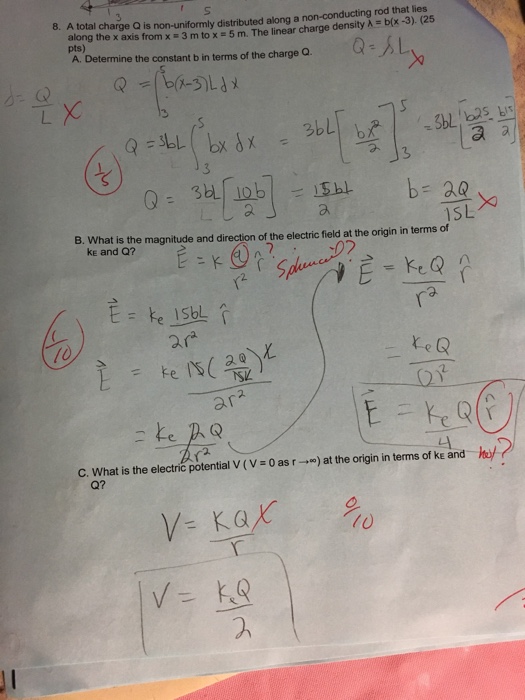 3 5
8. A total charge Q is non-uniformly distributed along a non-conducting rod that lies
along the x axis from x = 3 m to x = 5 m. The linear charge density λ = b(x -3). (25
pts)
A. Determine the constant b in terms of the charge Q.
Q = λL X
λ = Q/L X
Q = ∫₃⁵ b(x-3)L dx
Q = 3bL ∫₃⁵ bx dx = 3bL [bx²/2]₃⁵ = 3bL [b25/2 -
1/5
Q = 3bL [10b/2] = 15bL/2 b = 2Q/15L X
B. What is the magnitude and direction of the electric field at the origin in terms of
kE and Q?
E⃗ = K Q/r² r̂ ? Spherical?
E⃗ = KeQ/r² r̂
E⃗ = ke 15bL/2r² r̂
1/10
E⃗ = ke 15(2Q/15L)L/2r²
= KeQ/
= ke 2Q/2r²
E⃗ = KeQ/4 r̂
?
C. What is the electric potential V ( V = 0 as r →∞) at the origin in terms of kE and
Q?
V = KQ/r X
0/10
V = KeQ/2